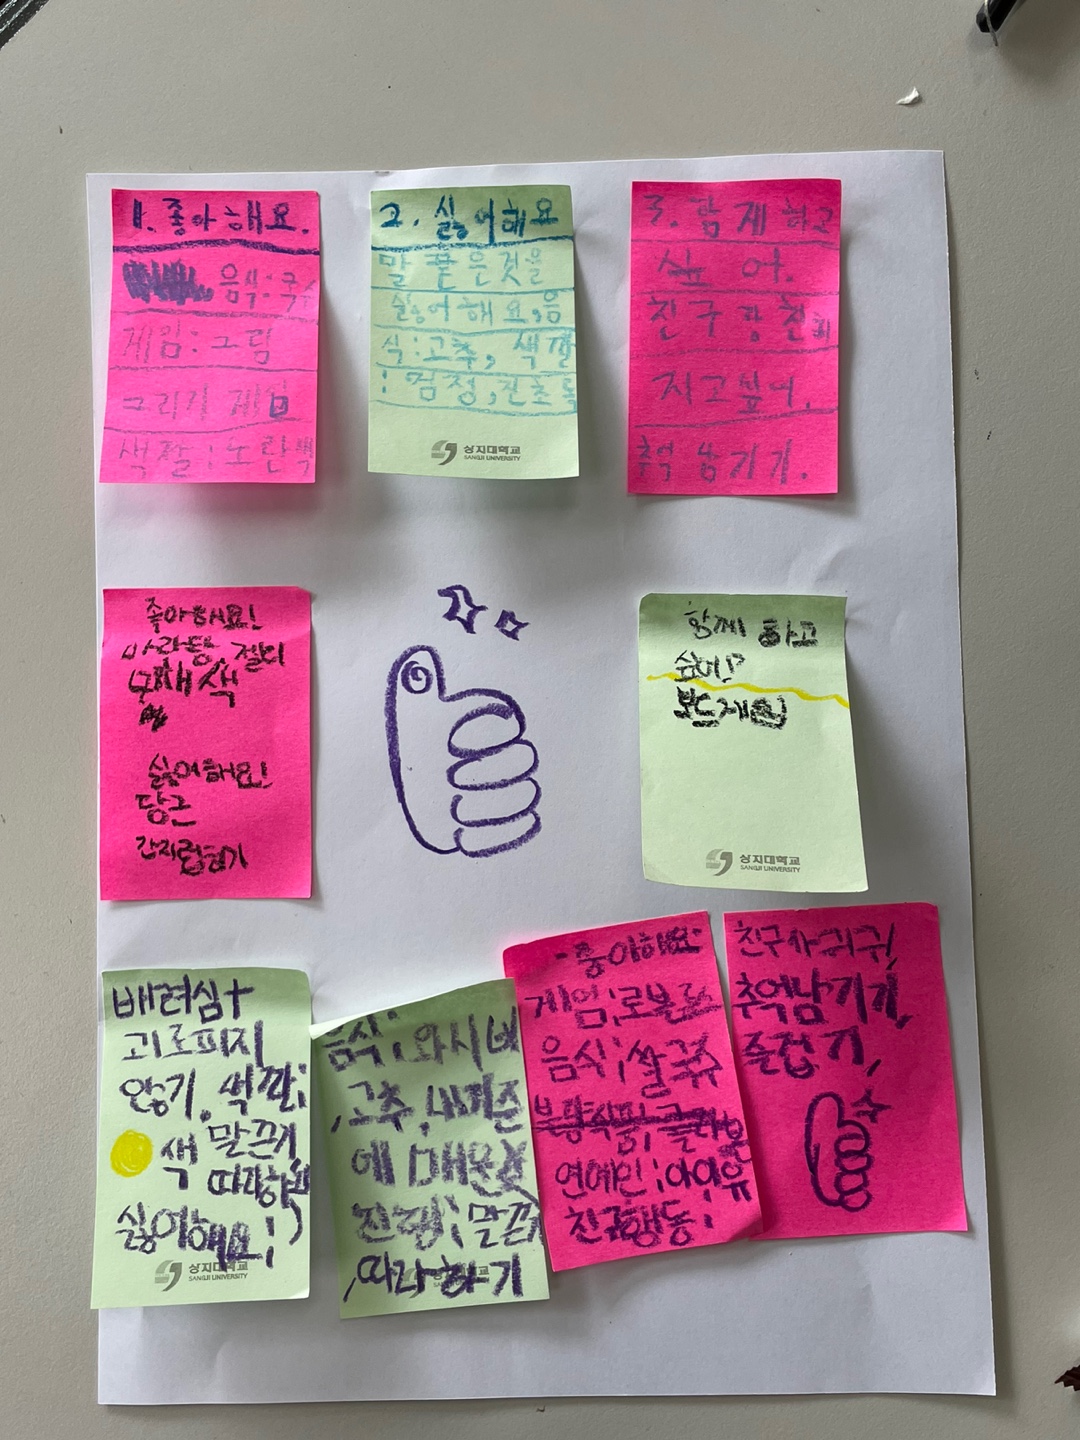 1. 좋아해요.
음식: 국수
게임: 그림
그리기 게임
색깔: 노란색
2. 싫어해요
말 끝은것을
싫어해요, 음
식: 고추, 색깔
: 검정, 진초록
상지대학교
SANGJI UNIVERSITY
3. 함께 하고
싶어.
친구랑 친해
지고싶어.
추억 남기기.
좋아해요!
젤리
색
싫어해요!
당근
간지럽히기
함께 하고
싶어!?
보드게임
상지대학교
SANGJI UNIVERSITY
배려심+
괴로피지
않기. 색깔;
색 말끈기,
따라하기
싫어해요;)
상지대학교
SANGJI UNIVERSITY
음식; 와사비
,고추,
에 매운것
말끈기
,따라하기
-좋아해요-
게임; 로블록스
음식; 쌀국수
연예인; 아이유
친구행동;
친구사귀귀,
추억남기기,
즐겁기,